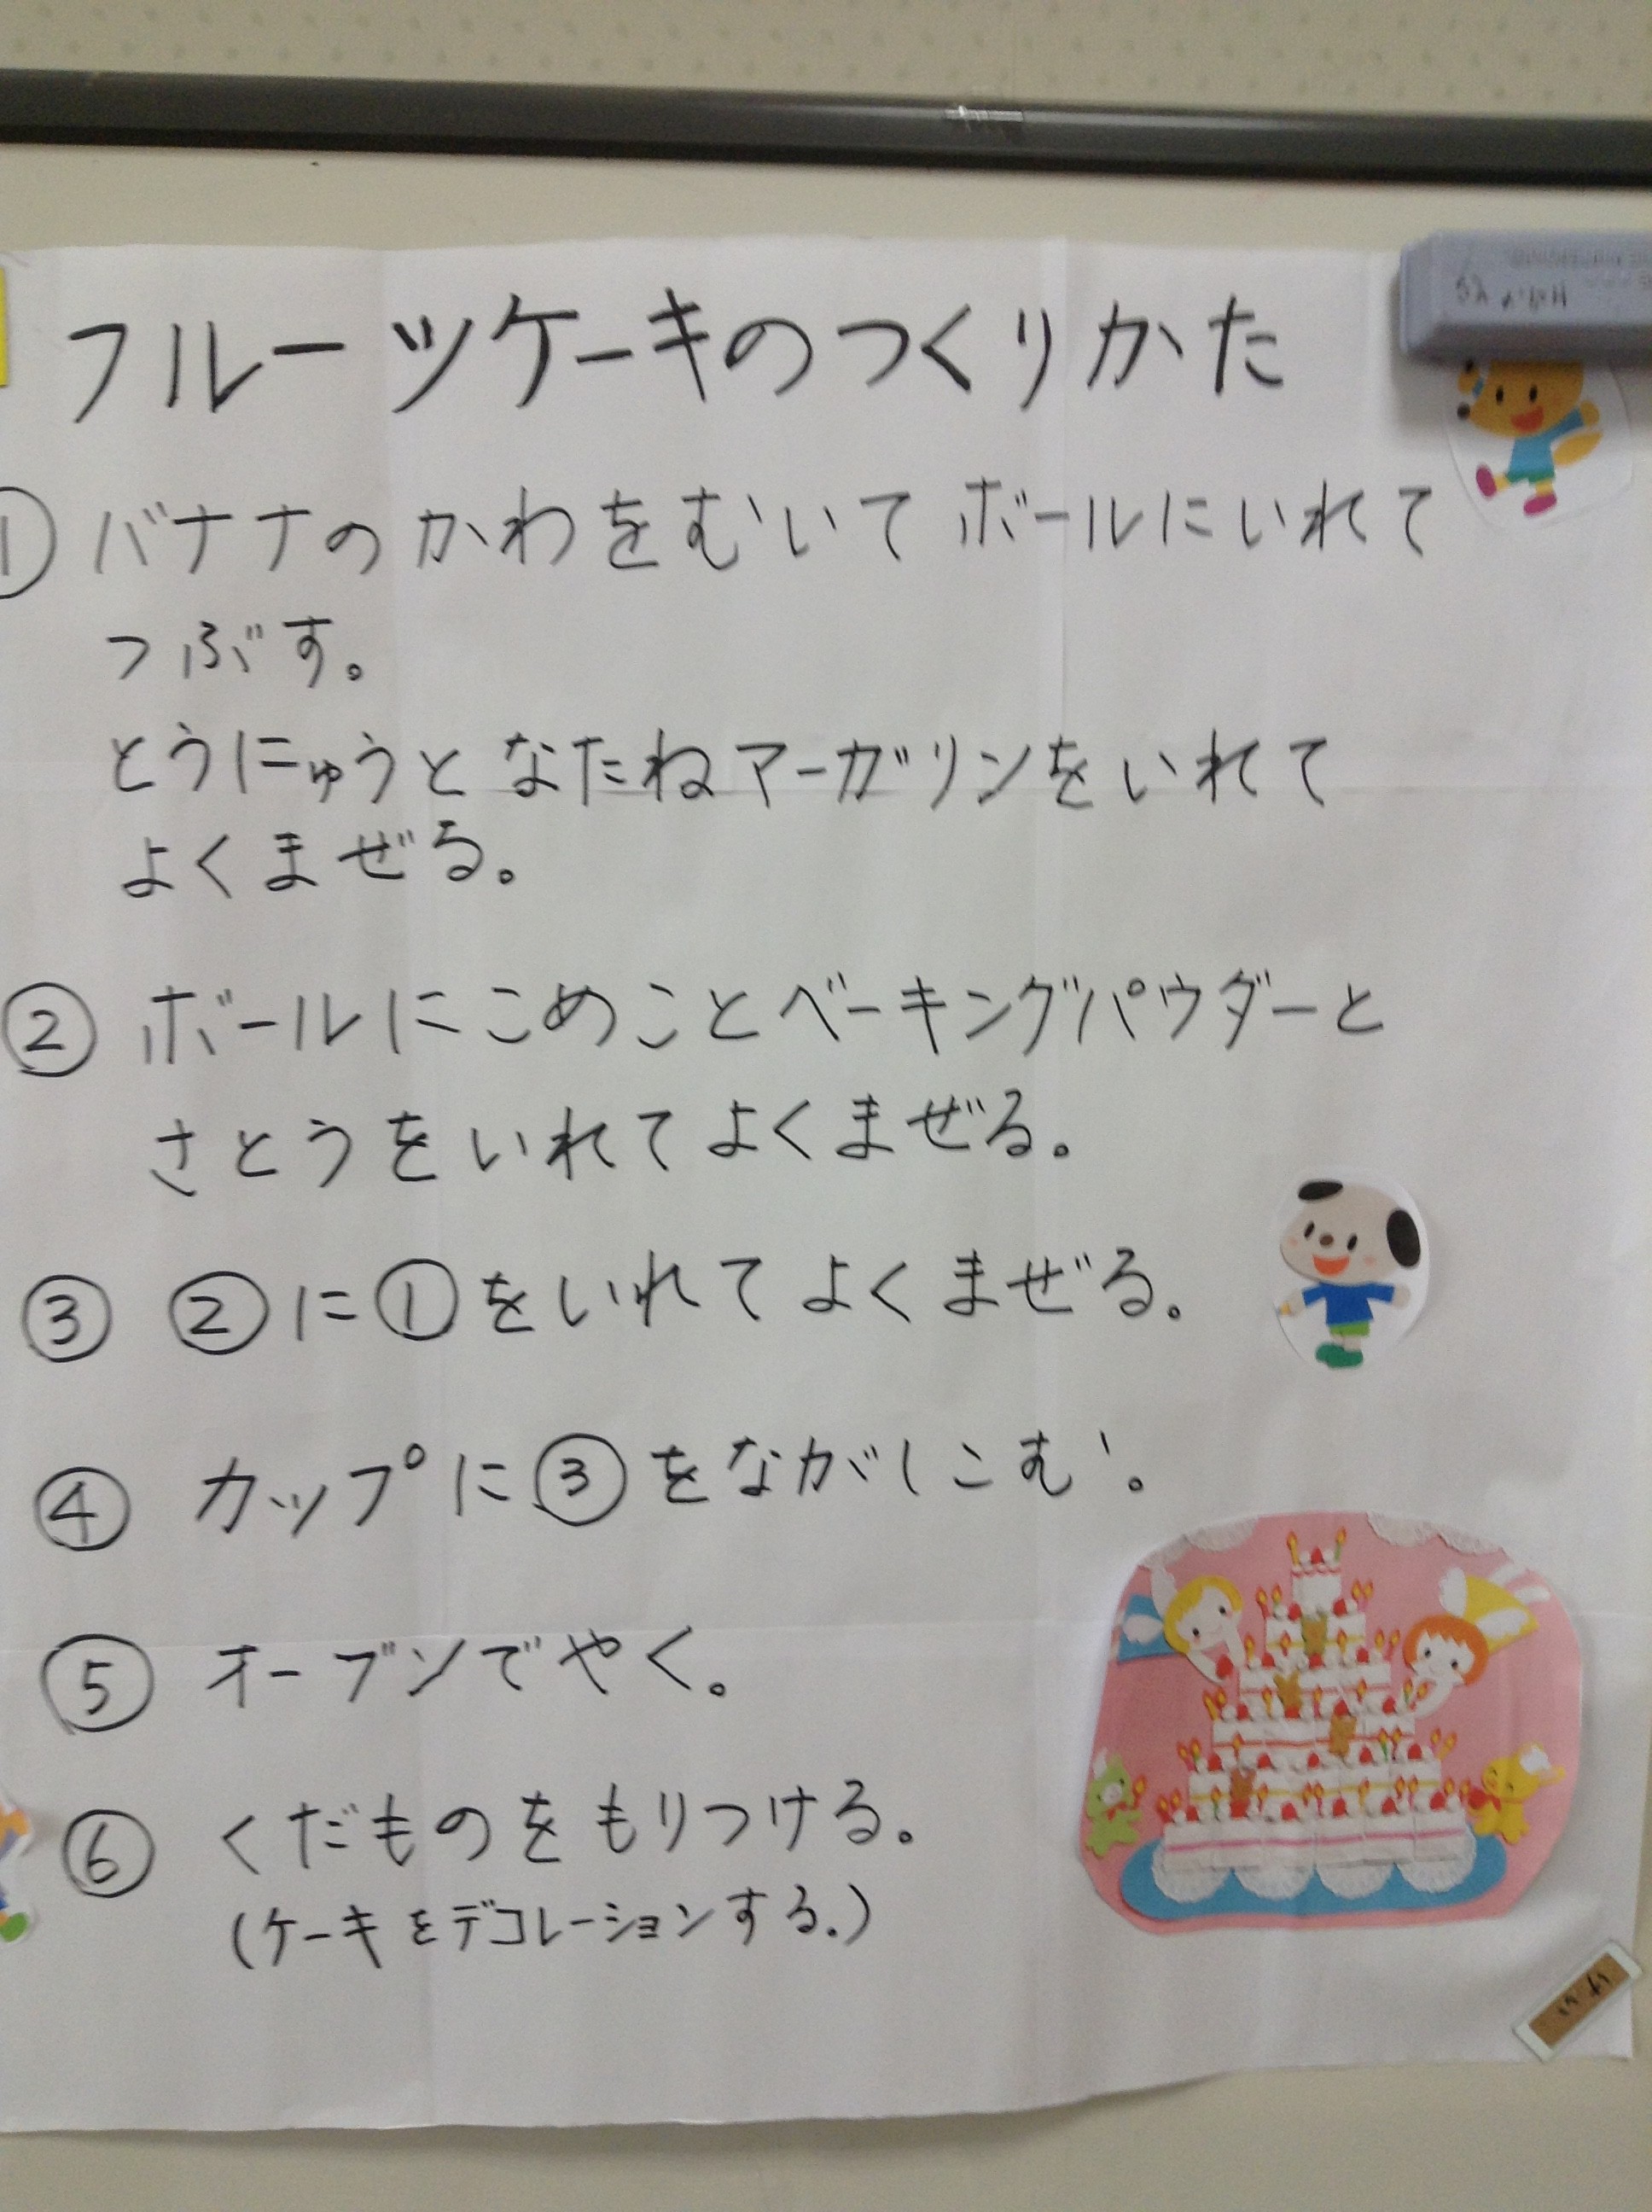 フルーツケーキのつくりかた
① バナナのかわをむいてボールにいれて
つぶす。
とうにゅうとなたねマーガリンをいれて
よくまぜる。
② ボールにこめことベーキングパウダーと
さとうをいれてよくまぜる。
③ ②に①をいれてよくまぜる。
④ カップに③をながしこむ。
⑤ オーブンでやく。
⑥ くだものをもりつける。
(ケーキをデコレーションする。)